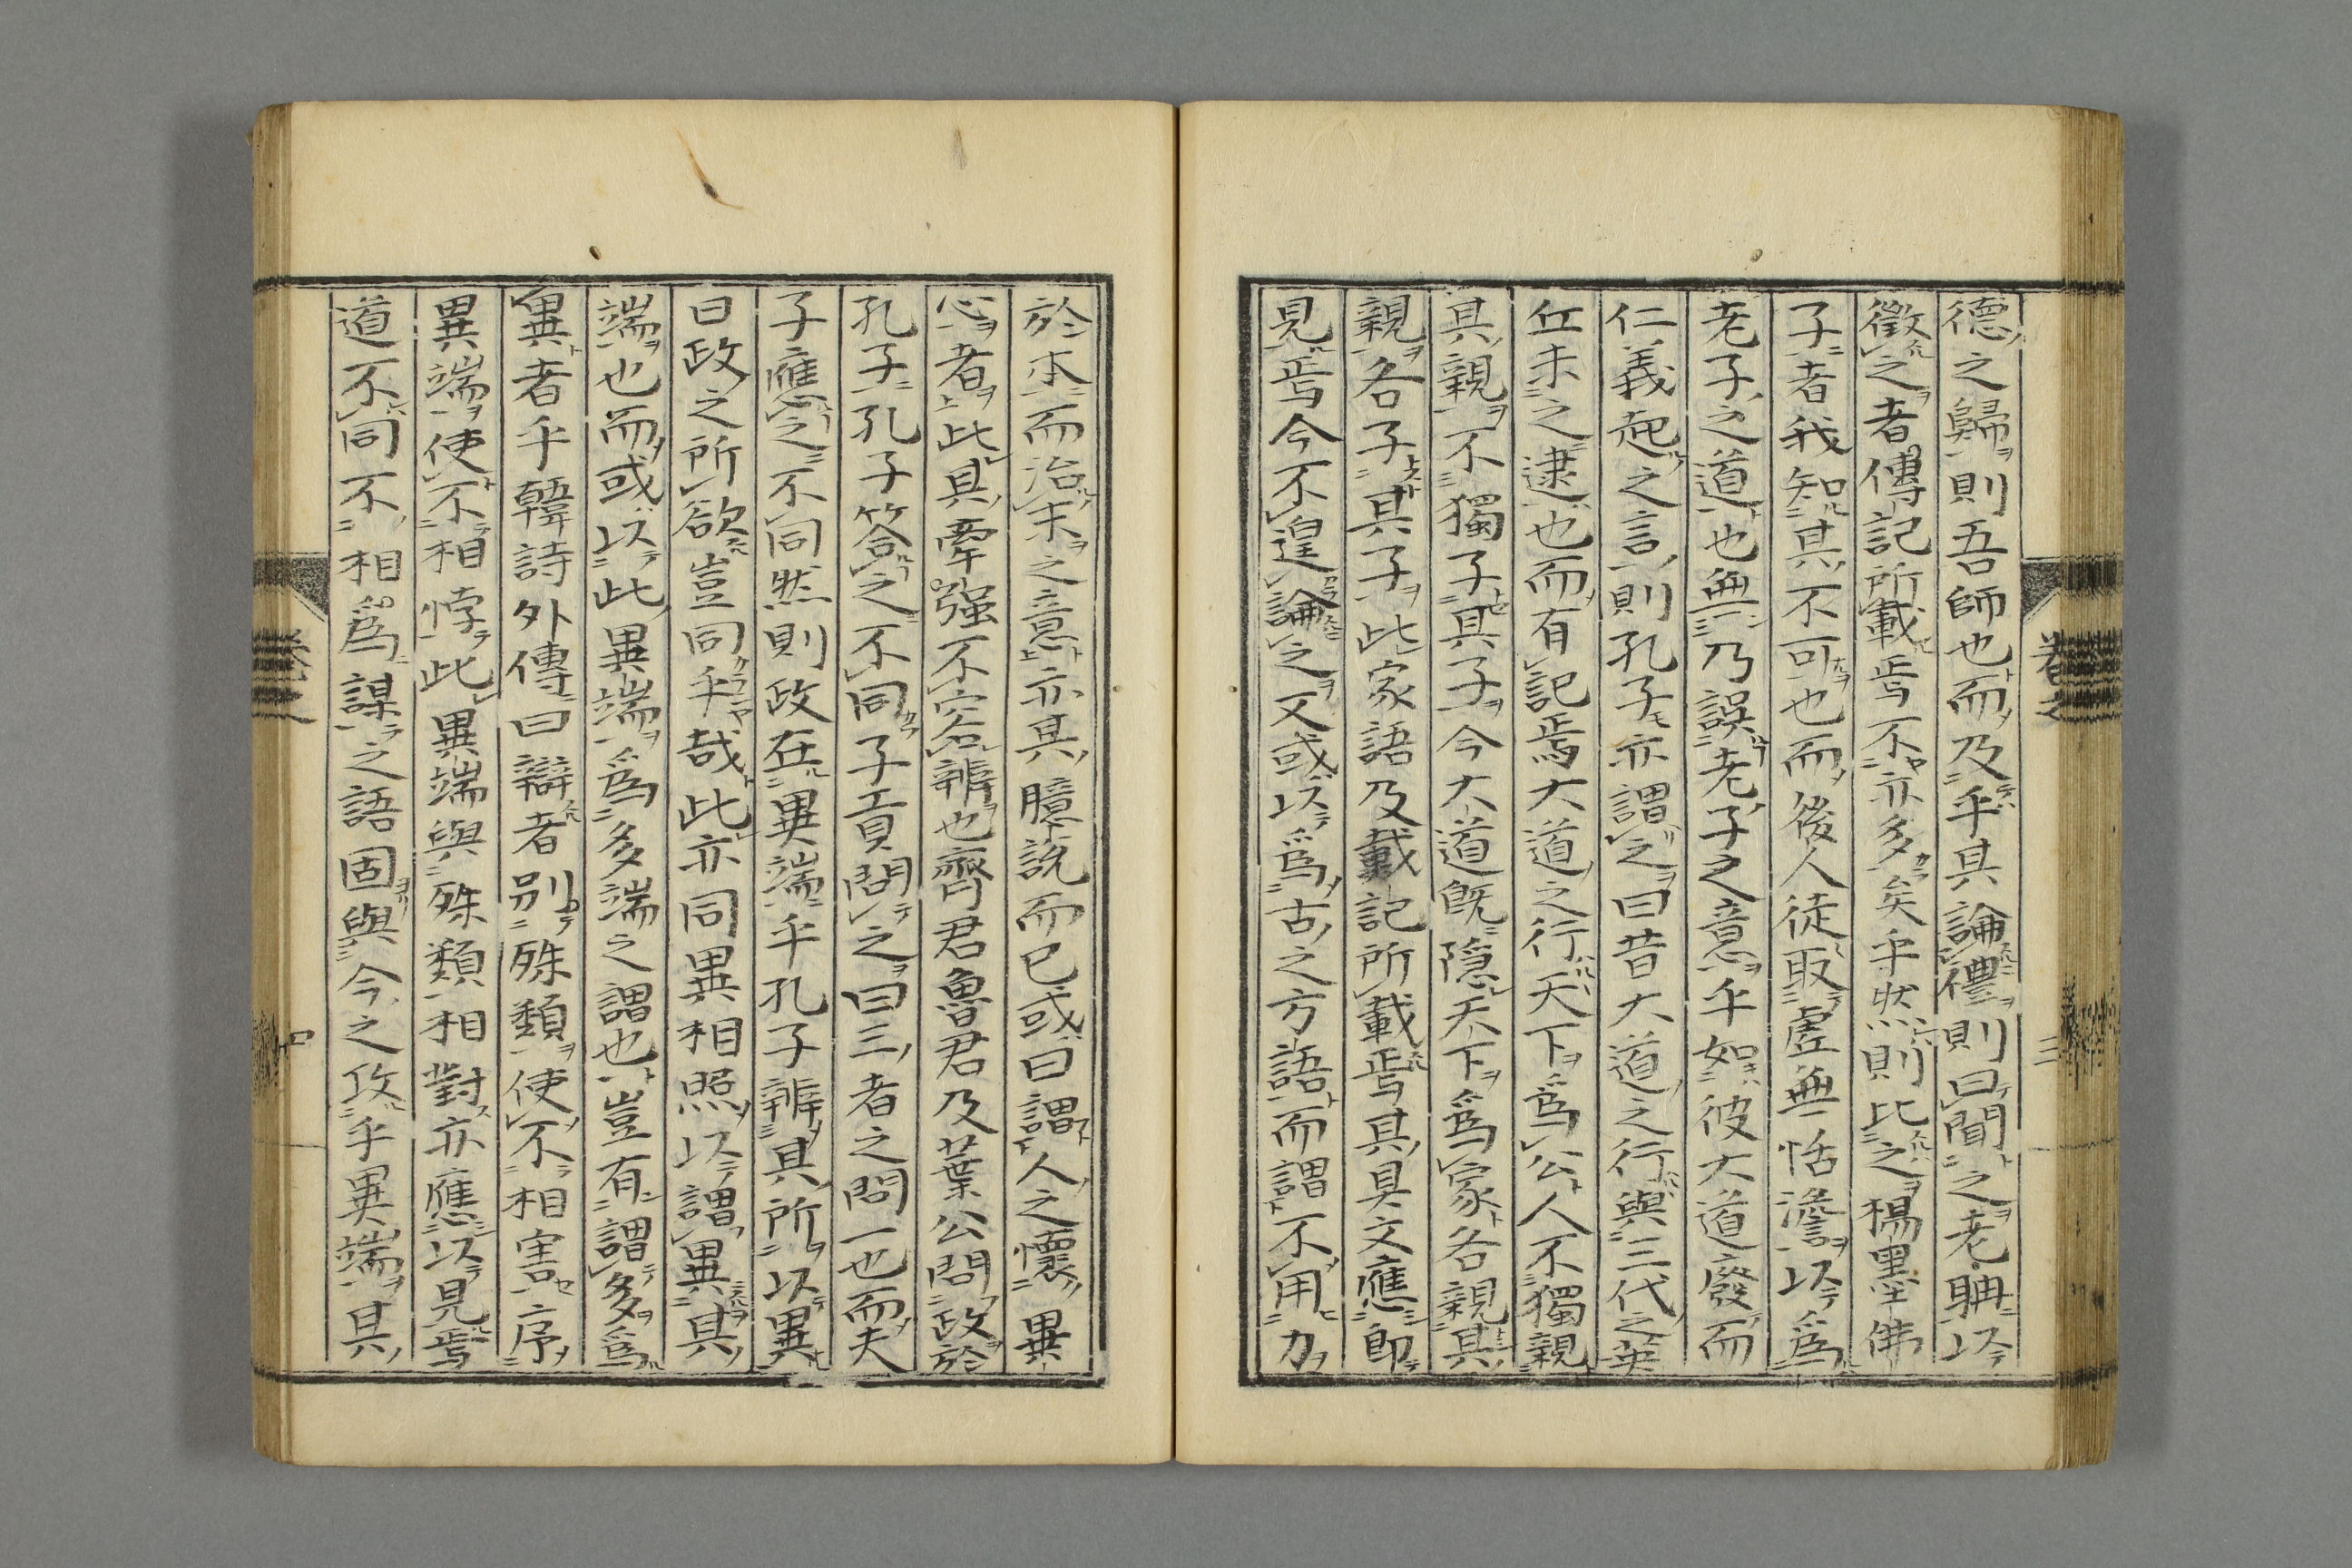 德之歸則吾師也而及乎其論禮則曰聞之老聃以
徵之者傳記所載焉不亦多矣乎然則比之楊墨佛
子者我知其不可也而後人徒取虛無恬澹以爲
老子之道也無乃誤老子之意乎如彼大道廢而
仁義起之言則孔子亦謂之曰昔大道之行與三代之英
丘未之逮也而有記焉大道之行天下爲公人不獨親
其親不獨子其子今大道既隱天下爲家各親其
親各子其子此家語及戴記所載焉其具文應卽
見焉今不遑論之又或以爲古之方語而謂不用力
於本而治末之意亦其臆說而已或曰謂人之懷異
心者此其牽强不容辨也齊君魯君及葉公問政於
孔子孔子答之不同子貢問之曰三者之問一也而夫
子應之不同然則政在異端乎孔子辨其所以異
曰政之所欲豈同乎哉此亦同異相照以謂異其
端也而或以此異端爲多端之謂也豈有謂多爲
異者乎韓詩外傳曰辯者別殊類使不相害序
異端使不相悖此異端與殊類相對亦應以見焉
道不同不相爲謀之語固與今之攻乎異端其
卷之
三
四